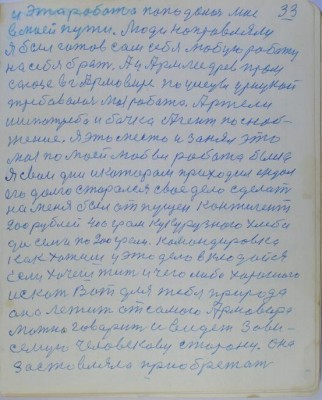 33
и эта работа попадалась мне
в моей пути. Люди направляли
я был готов сам себя любую работу
на себя брат. А у Армле
в г Армовире по улеци
требовался мой работа. Артели
и бочка Агент по снаб-
жению. Я это место и занял это
мая по моей любви работа была
я свои дни и которам приходил
его долго старался свае дело сделат
на меня был отпущен контигент
200 рублей 400 грам кукурузного хлеба
да семи по 200 грам. Камандировка
как хатиш у это дело вкладойся
Если хочеш жит и чего либо харошого
искат Вот для тебя природа
ана лежит от самого Армовира
можна говорит и видет Зави-
семую человекову сторану. Она
заставляла приобретат